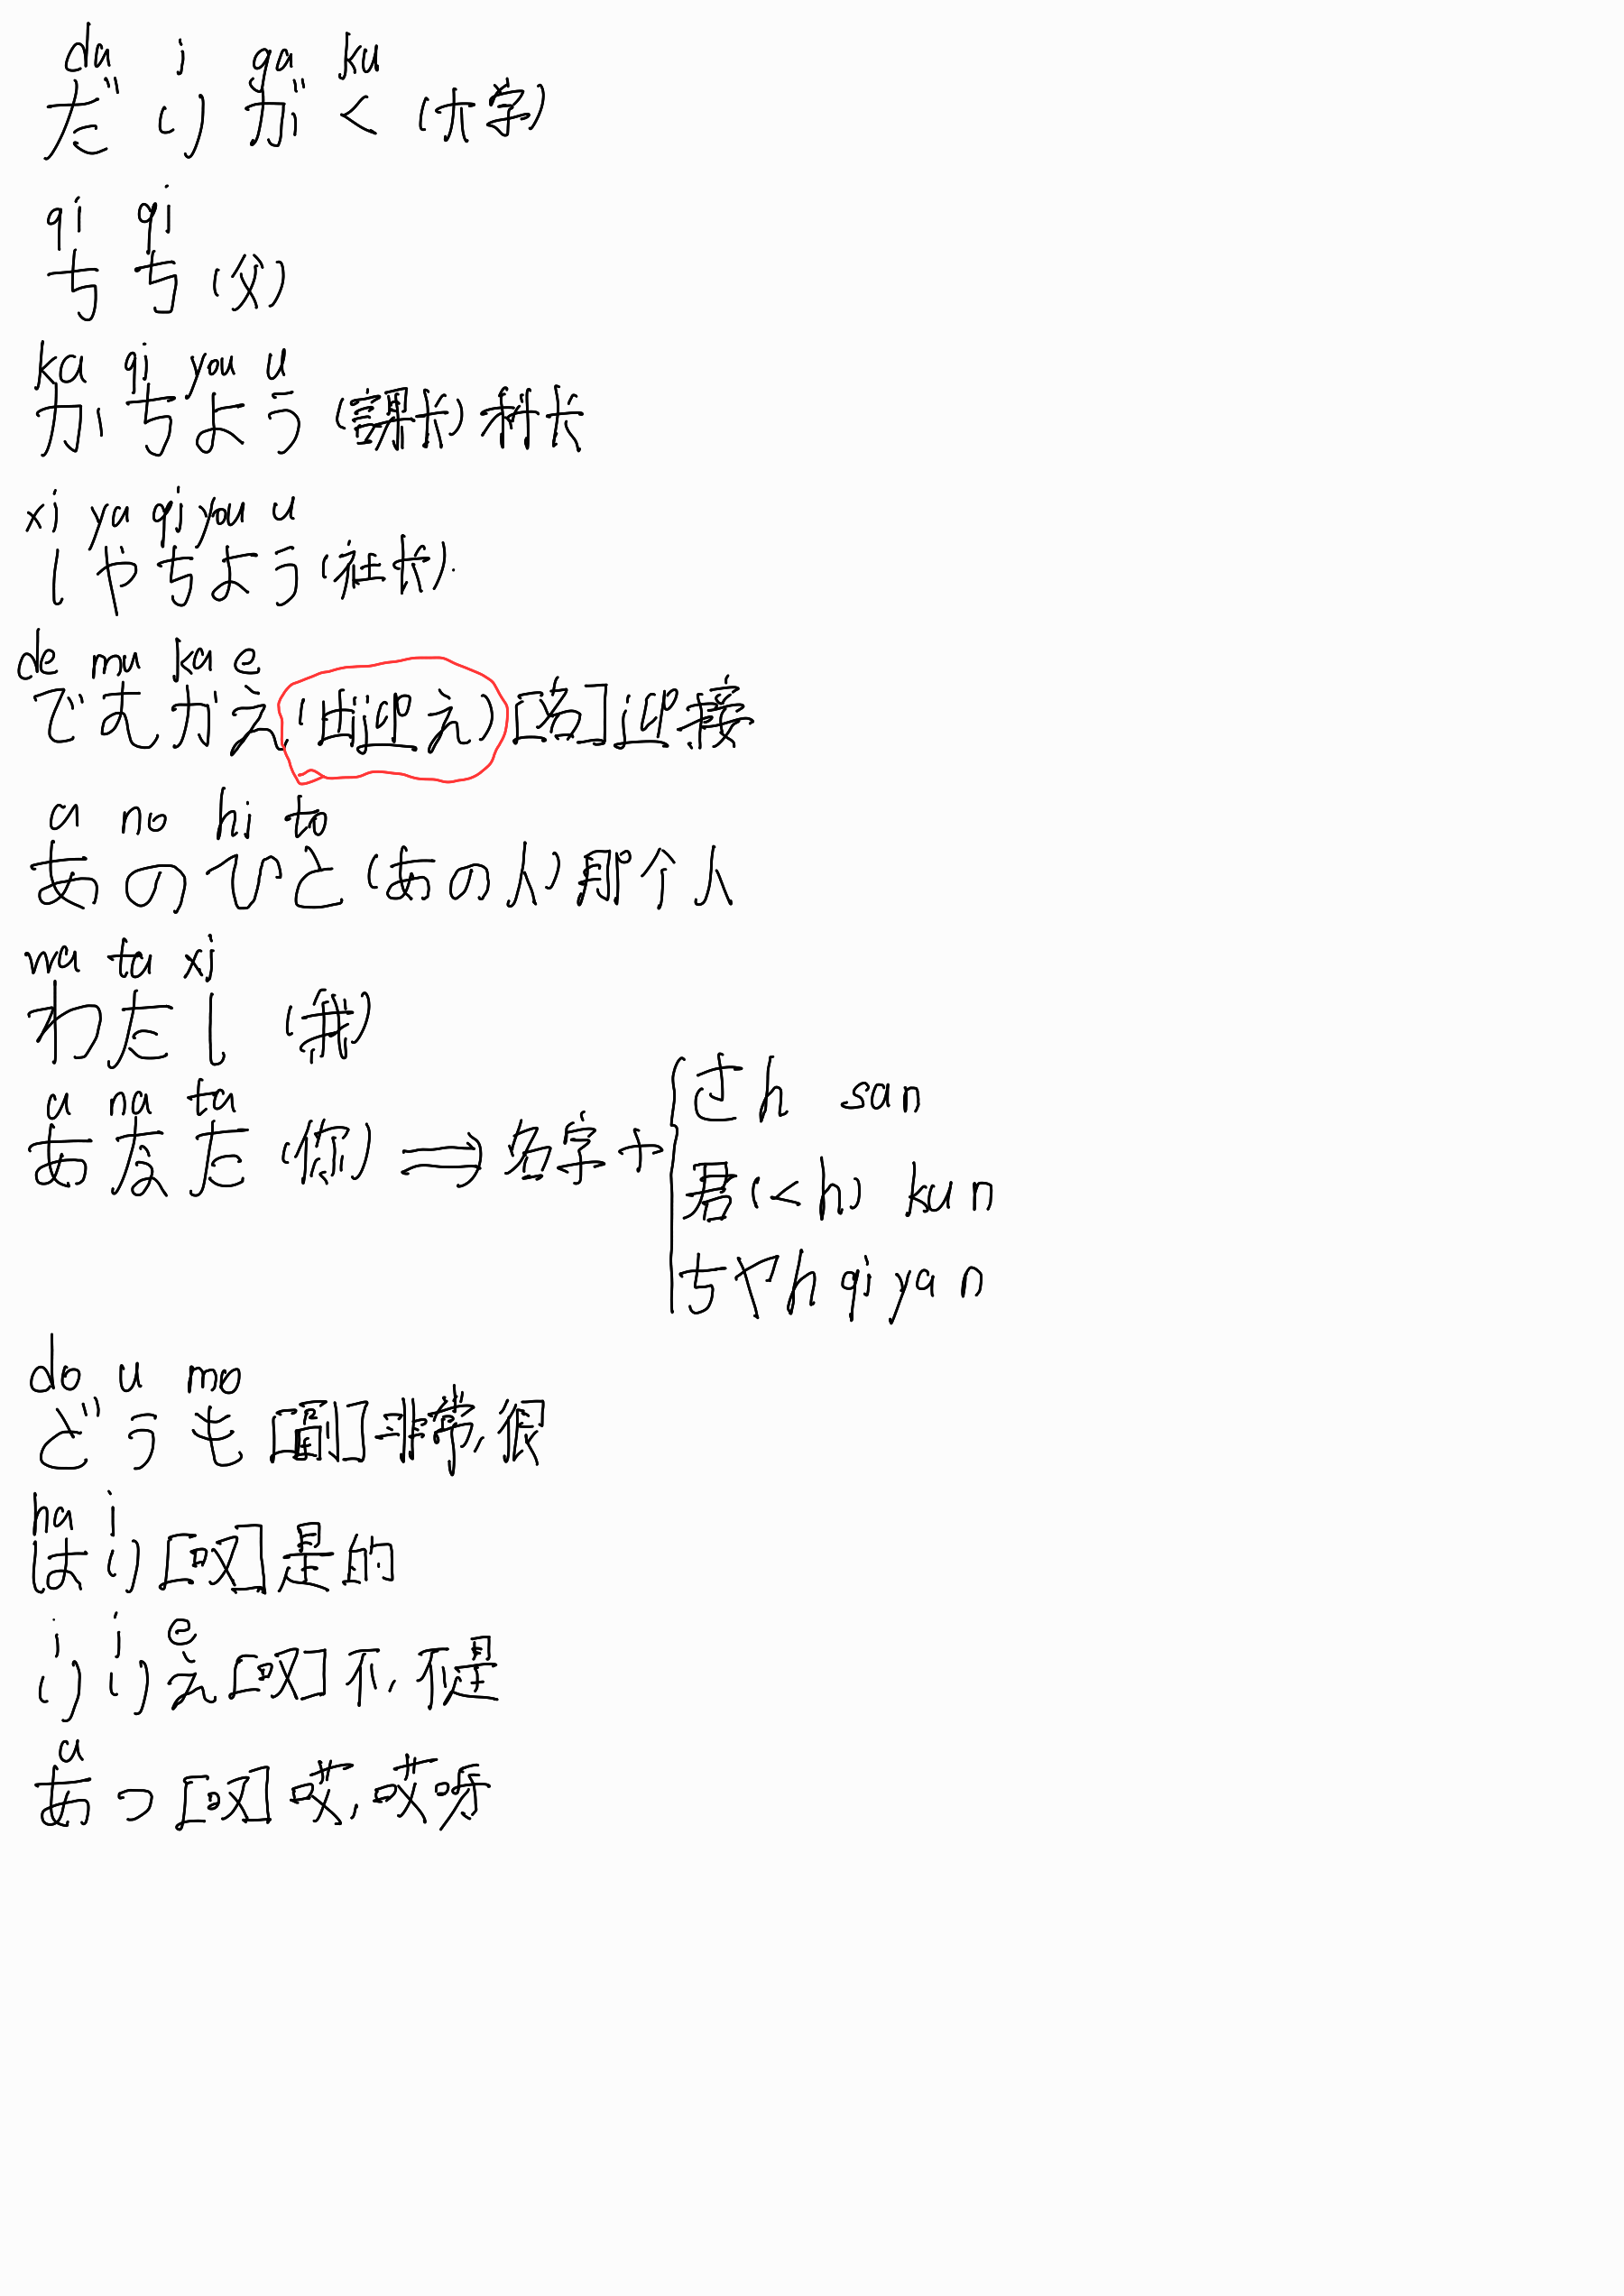 da i ga ku
だいがく(大学)
qi qi
ちち(父)
ka qi you u
かちよう(課长)科长
xi ya qi you u
しやちよう(社长).
de mu ka e
でむかえ(出迎え)[名]迎接
a no hi to
あのひと(あの人)那个人
wa ta xi
わたし(我)
a na ta
あなた(你)⇒名字+
さん san
君(くん) kun
ちやん qi ya n
do u mo
どうも[副]非常,很
ha i
はい[叹]是的
i i e
いいえ[叹]不,不是
a
あつ[叹]哎,哎呀